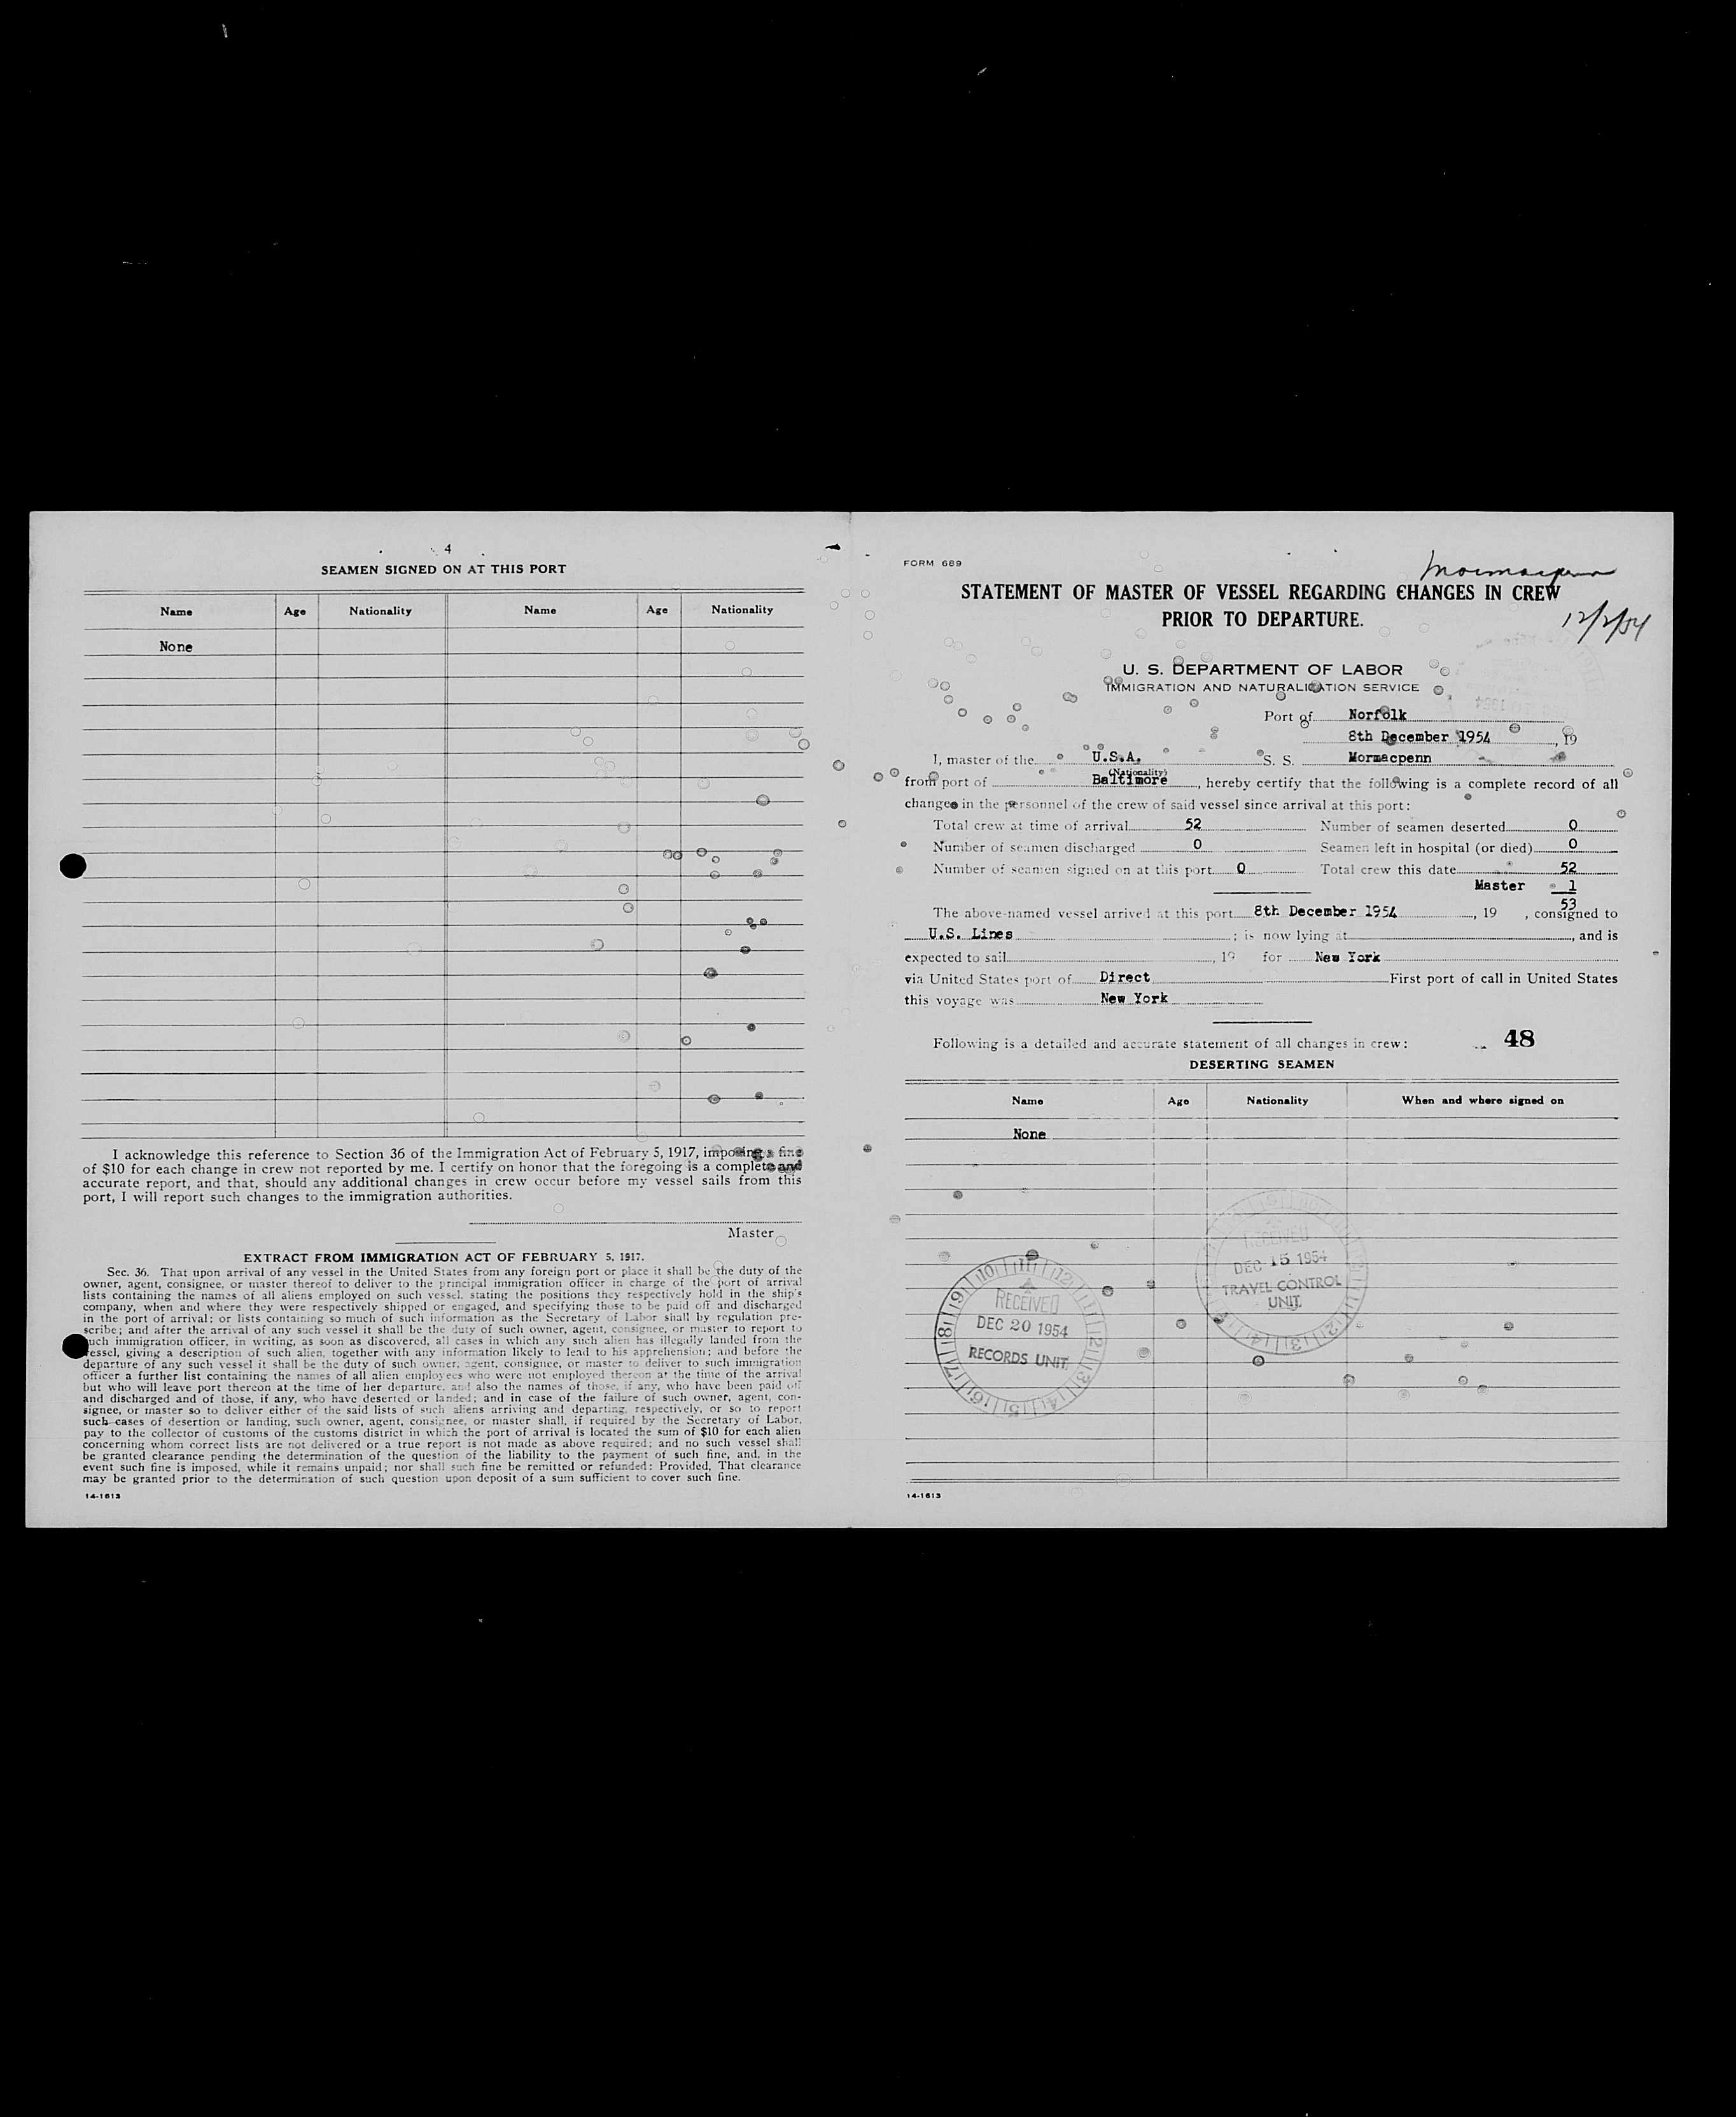 4
SEAMEN SIGNED ON AT THIS PORT
Name Age Nationality Name Age Nationality
None
I acknowledge this reference to Section 36 of the Immigration Act of February 5, 1917, imposing a fine
of $10 for each change in crew not reported by me. I certify on honor that the foregoing is a complete and
accurate report, and that, should any additional changes in crew occur before my vessel sails from this
port, I will report such changes to the immigration authorities.
Master
EXTRACT FROM IMMIGRATION ACT OF FEBRUARY 5, 1917.
Sec. 36. That upon arrival of any vessel in the United States from any foreign port or place it shall be the duty of the
owner, agent, consignee, or master thereof to deliver to the principal immigration officer in charge of the port of arrival
lists containing the names of all aliens employed on such vessel, stating the positions they respectively hold in the ship's
company, when and where they were respectively shipped or engaged, and specifying those to be paid off and discharged
in the port of arrival; or lists containing so much of such information as the Secretary of Labor shall by regulation pre-
scribe; and after the arrival of any such vessel it shall be the duty of such owner, agent, consignee, or master to report to
such immigration officer, in writing, as soon as discovered, all cases in which any such alien has illegally landed from the
vessel, giving a description of such alien, together with any information likely to lead to his apprehension; and before the
departure of any such vessel it shall be the duty of such owner, agent, consignee, or master to deliver to such immigration
officer a further list containing the names of all alien employees who were not employed thereon at the time of the arrival
but who will leave port thereon at the time of her departure, and also the names of those, if any, who have been paid off
and discharged and of those, if any, who have deserted or landed; and in case of the failure of such owner, agent, con-
signee, or master so to deliver either of the said lists of such aliens arriving and departing, respectively, or so to report
such cases of desertion or landing, such owner, agent, consignee, or master shall, if required by the Secretary of Labor,
pay to the collector of customs of the customs district in which the port of arrival is located the sum of $10 for each alien
concerning whom correct lists are not delivered or a true report is not made as above required; and no such vessel shall
be granted clearance pending the determination of the question of the liability to the payment of such fine, and, in the
event such fine is imposed, while it remains unpaid; nor shall such fine be remitted or refunded: Provided, That clearance
may be granted prior to the determination of such question upon deposit of a sum sufficient to cover such fine.
14-1613
FORM 689
Mormacpenn
STATEMENT OF MASTER OF VESSEL REGARDING CHANGES IN CREW
PRIOR TO DEPARTURE.
12/2/54
U. S. DEPARTMENT OF LABOR
IMMIGRATION AND NATURALIZATION SERVICE
Port of Norfolk
8th December 1954, 19
I, master of the U.S.A. S. S. Mormacpenn
(Nationality)
from port of Baltimore, hereby certify that the following is a complete record of all
changes in the personnel of the crew of said vessel since arrival at this port:
Total crew at time of arrival 52 Number of seamen deserted 0
Number of seamen discharged 0 Seamen left in hospital (or died) 0
Number of seamen signed on at this port 0 Total crew this date 52
Master 1
53
The above-named vessel arrived at this port 8th December 1954, 19 , consigned to
U.S. Lines ; is now lying at , and is
expected to sail , 19 for New York
via United States port of Direct First port of call in United States
this voyage was New York
Following is a detailed and accurate statement of all changes in crew: 48
DESERTING SEAMEN
Name Age Nationality When and where signed on
None
RECEIVED
DEC 15 1954
TRAVEL CONTROL
UNIT
RECEIVED
DEC 20 1954
RECORDS UNIT
14-1613